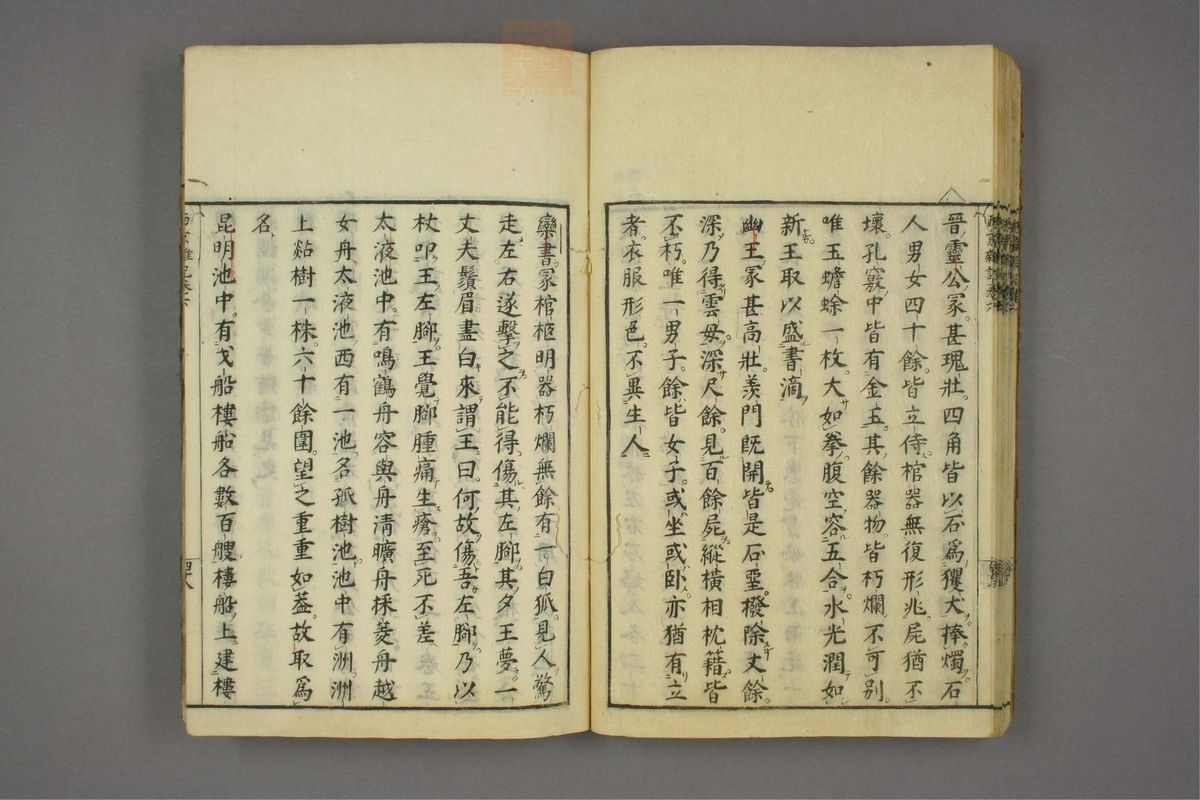 晉靈公冢甚瑰壯四角皆以石爲玃犬捧燭石
人男女四十餘皆立侍棺器無復形兆屍猶不
壞孔竅中皆有金玉其餘器物皆朽爛不可別
唯玉蟾蜍一枚大如拳腹空容五合水光潤如
新王取以盛書滴
幽王冢甚高壯羨門既開皆是石堊撥除丈餘
深乃得雲母深尺餘見百餘屍縱橫相枕籍皆
不朽唯一男子餘皆女子或坐或臥亦猶有立
者衣服形色不異生人
欒書冢棺柩明器朽爛無餘有白狐見人驚
走左右遂擊之不能得傷其左腳其夕王夢一
丈夫鬚眉盡白來謂王曰何故傷吾左腳乃以
杖叩王左腳王覺腳腫痛生瘡至死不差
太液池中有鳴鶴舟容與舟清曠舟採菱舟越
女舟太液池西有一池名孤樹池池中有洲洲
上煔樹一株六十餘圍望之重重如蓋故取爲
名
昆明池中有戈船樓船各數百艘樓船上建樓